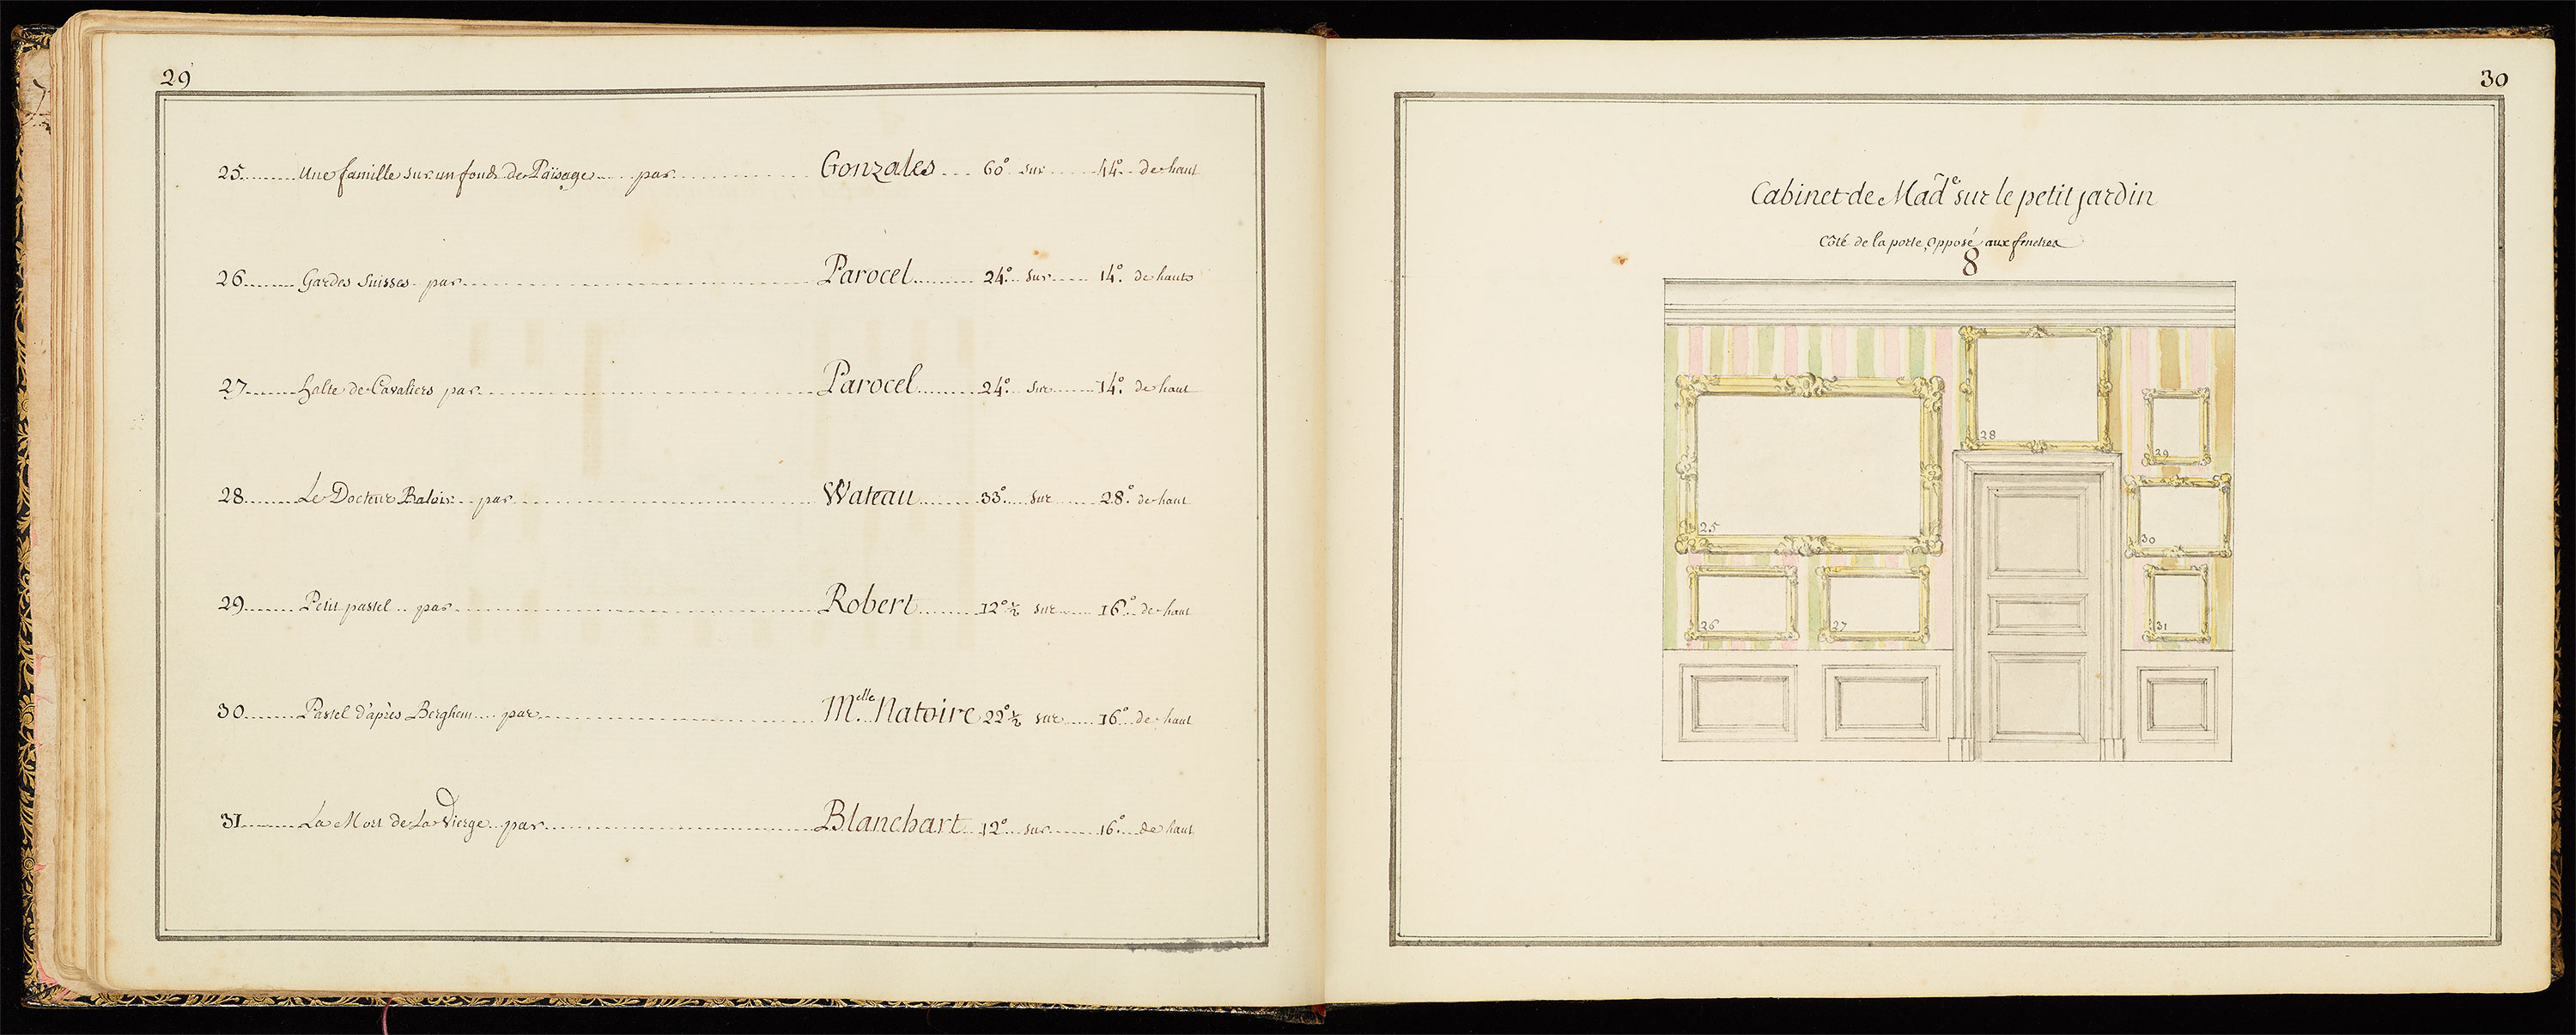 29
25........Une famille sur un fond de Païsage......par............... Gonzales.... 60° sur......44°.. de haut
26........Gardes Suisses. par............... Parocel......... 24°... sur..... 14°. de haut
27........halte de Cavaliers par............... Parocel......... 24°. sur......14°. de haut
28........Le Docteur Balois... par............... Wateau........ 33°.... sur ......28°. de haut
29........Petit pastel... par............... Robert........ 12° ½ sur.....16°.. de haut
30........Pastel d'après Berghem.... par............... M.elle Natoire 22° ½ sur.....16°... de haut
31........La Mort de La Vierge...par............... Blanchart.. 12°... sur.......16°.... de haut
30
Cabinet de Mad.e sur le petit jardin
Côté de la porte, Opposé aux fenetres
8
28
29
25
30
26
27
31